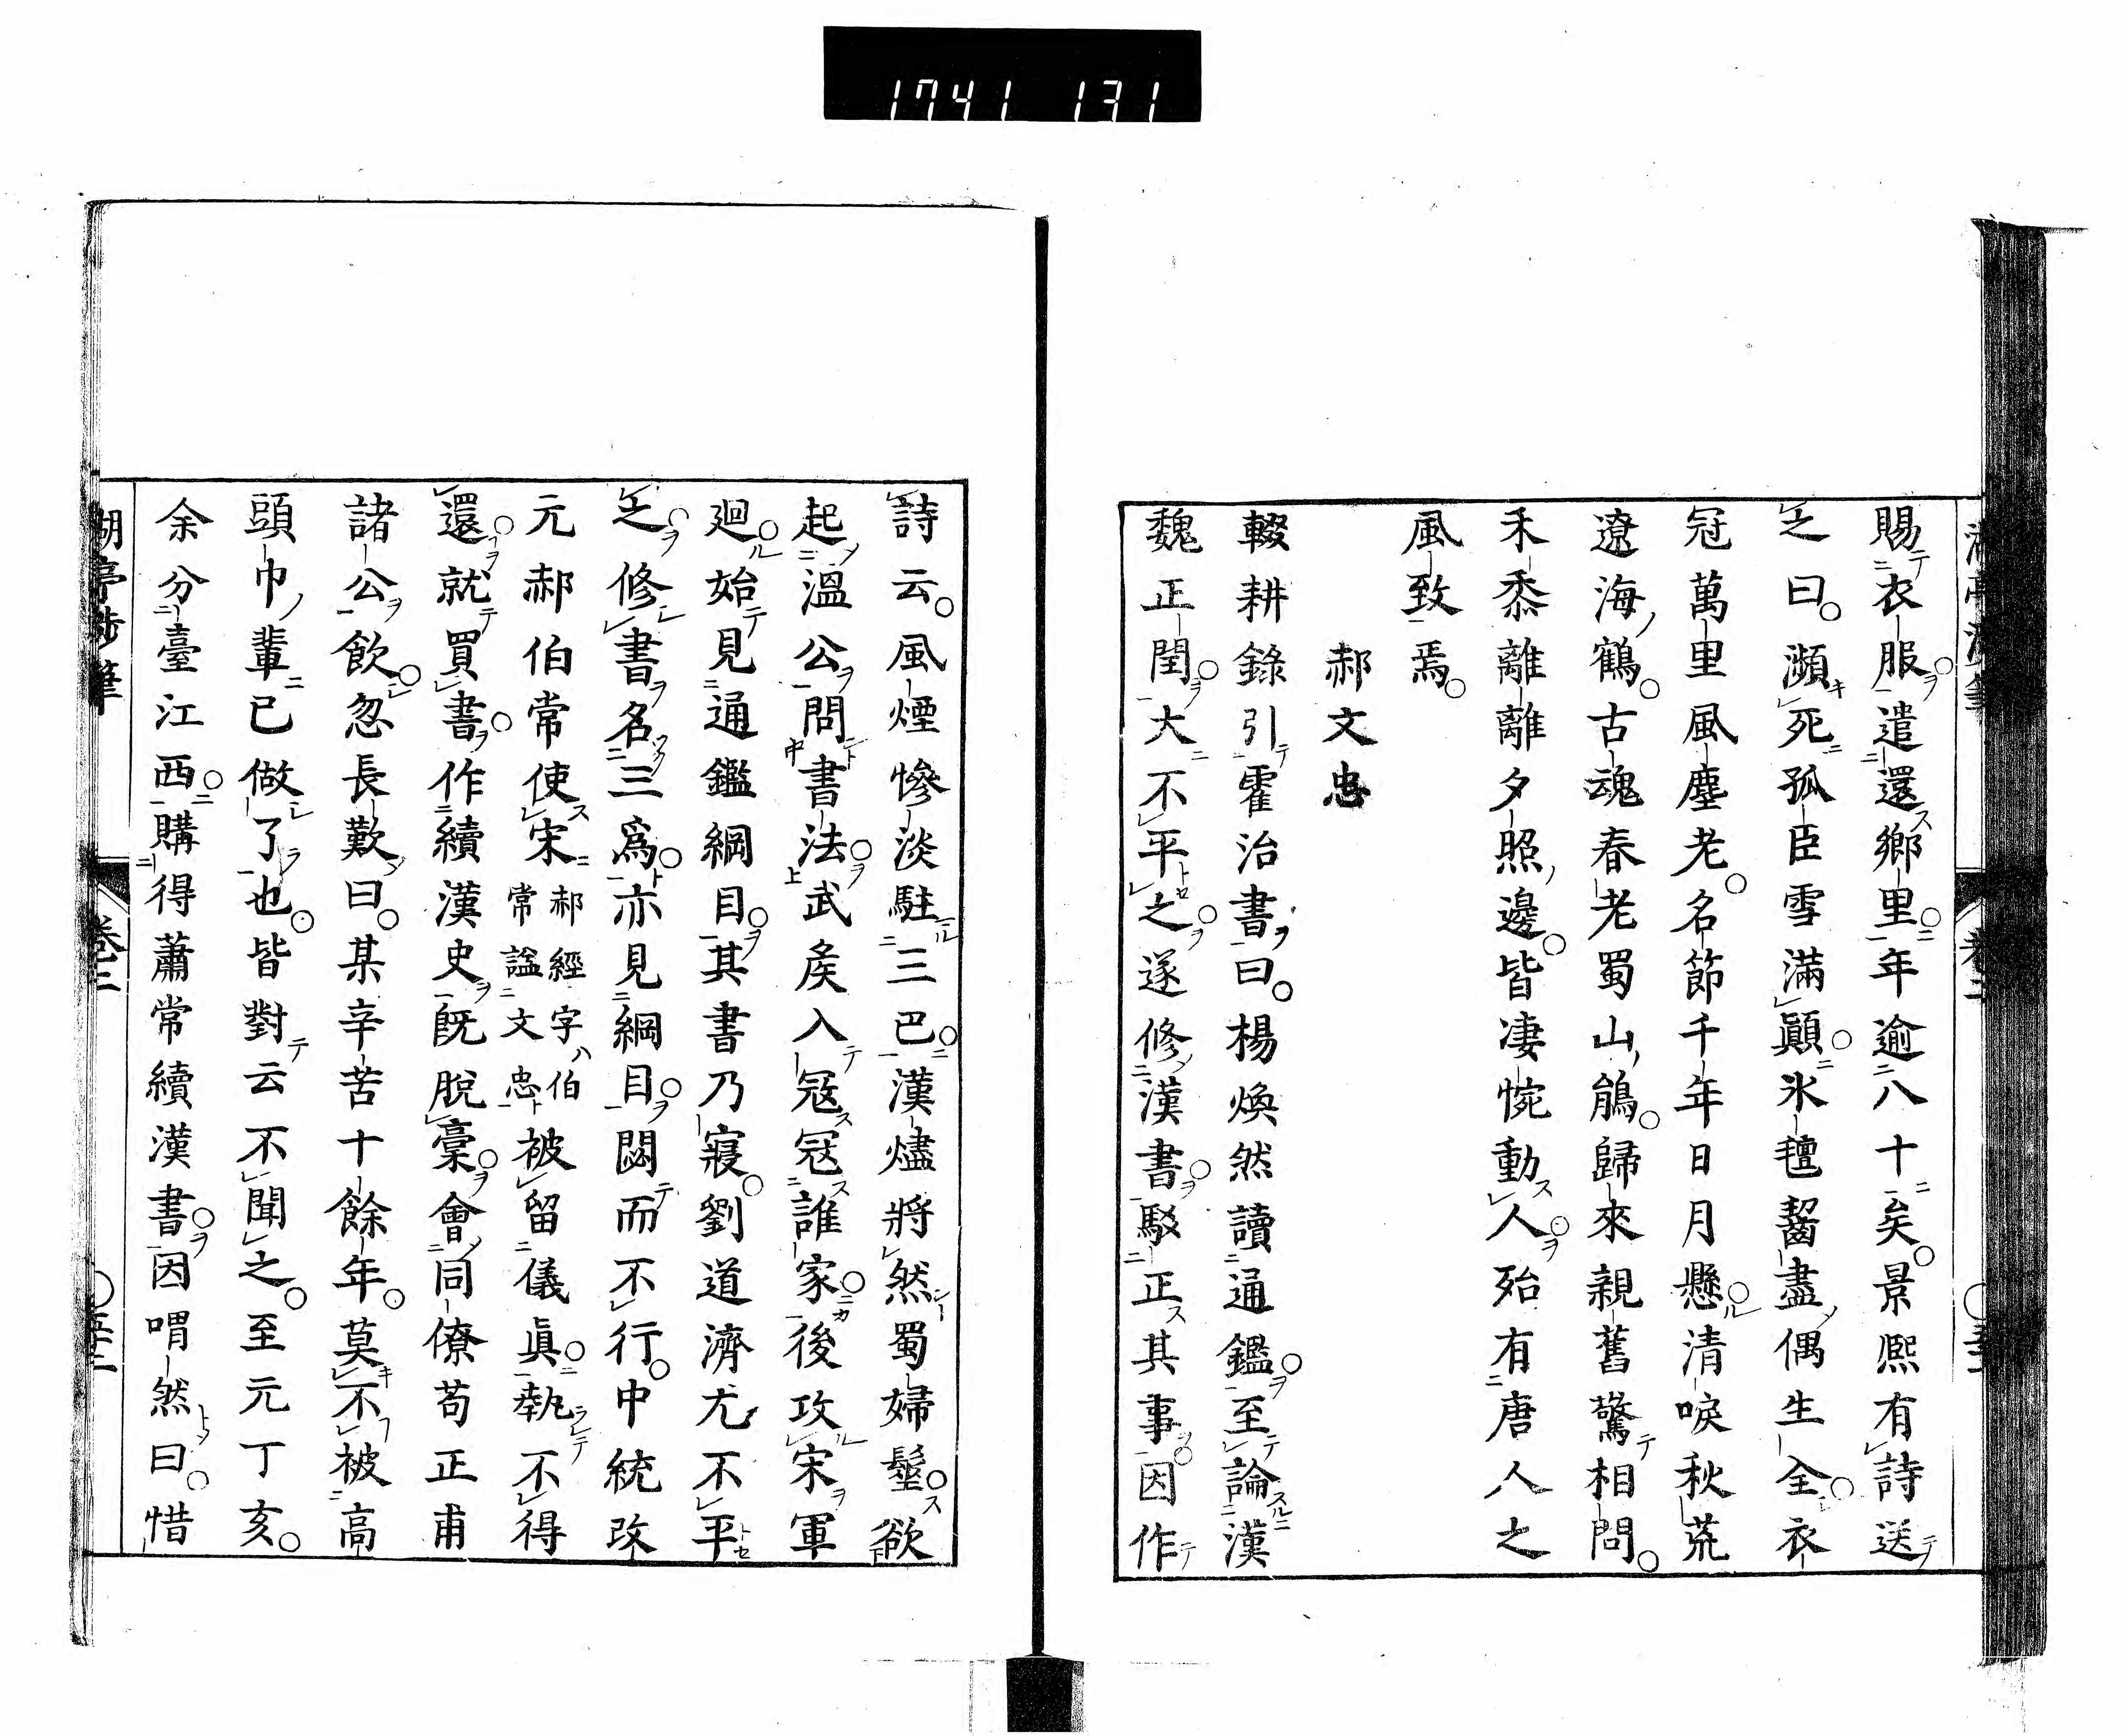 1741 131
賜衣服遣還鄉里年逾八十矣景熈有詩送
之曰瀕死孤臣雪滿顚氷氊齧盡偶生全衣
冠萬里風塵老名節千年日月懸清唳秋荒
遼海鶴古魂春老蜀山鵑歸來親舊驚相問
禾黍離離夕照邊皆凄惋動人殆有唐人之
風致焉
郝文忠
輟耕錄引霍治書曰楊煥然讀通鑑至論漢
魏正閏大不平之遂修漢書駁正其事因作
詩云風煙慘淡駐三巴漢燼將然蜀婦髽欲
起溫公問書法武矦入冦冦誰家後攻宋軍
廻始見通鑑綱目其書乃寢劉道濟尤不平
之修書名三爲亦見綱目閟而不行中統攻
元郝伯常使宋郝經字伯常諡文忠被留儀眞執不得
還就買書作續漢史旣脫稾會同僚苟正甫
諸公飲忽長歎曰某辛苦十餘年莫不被高
頭巾輩已做了也皆對云不聞之至元丁亥
余分臺江西購得蕭常續漢書因喟然曰惜
湖亭涉筆
卷三